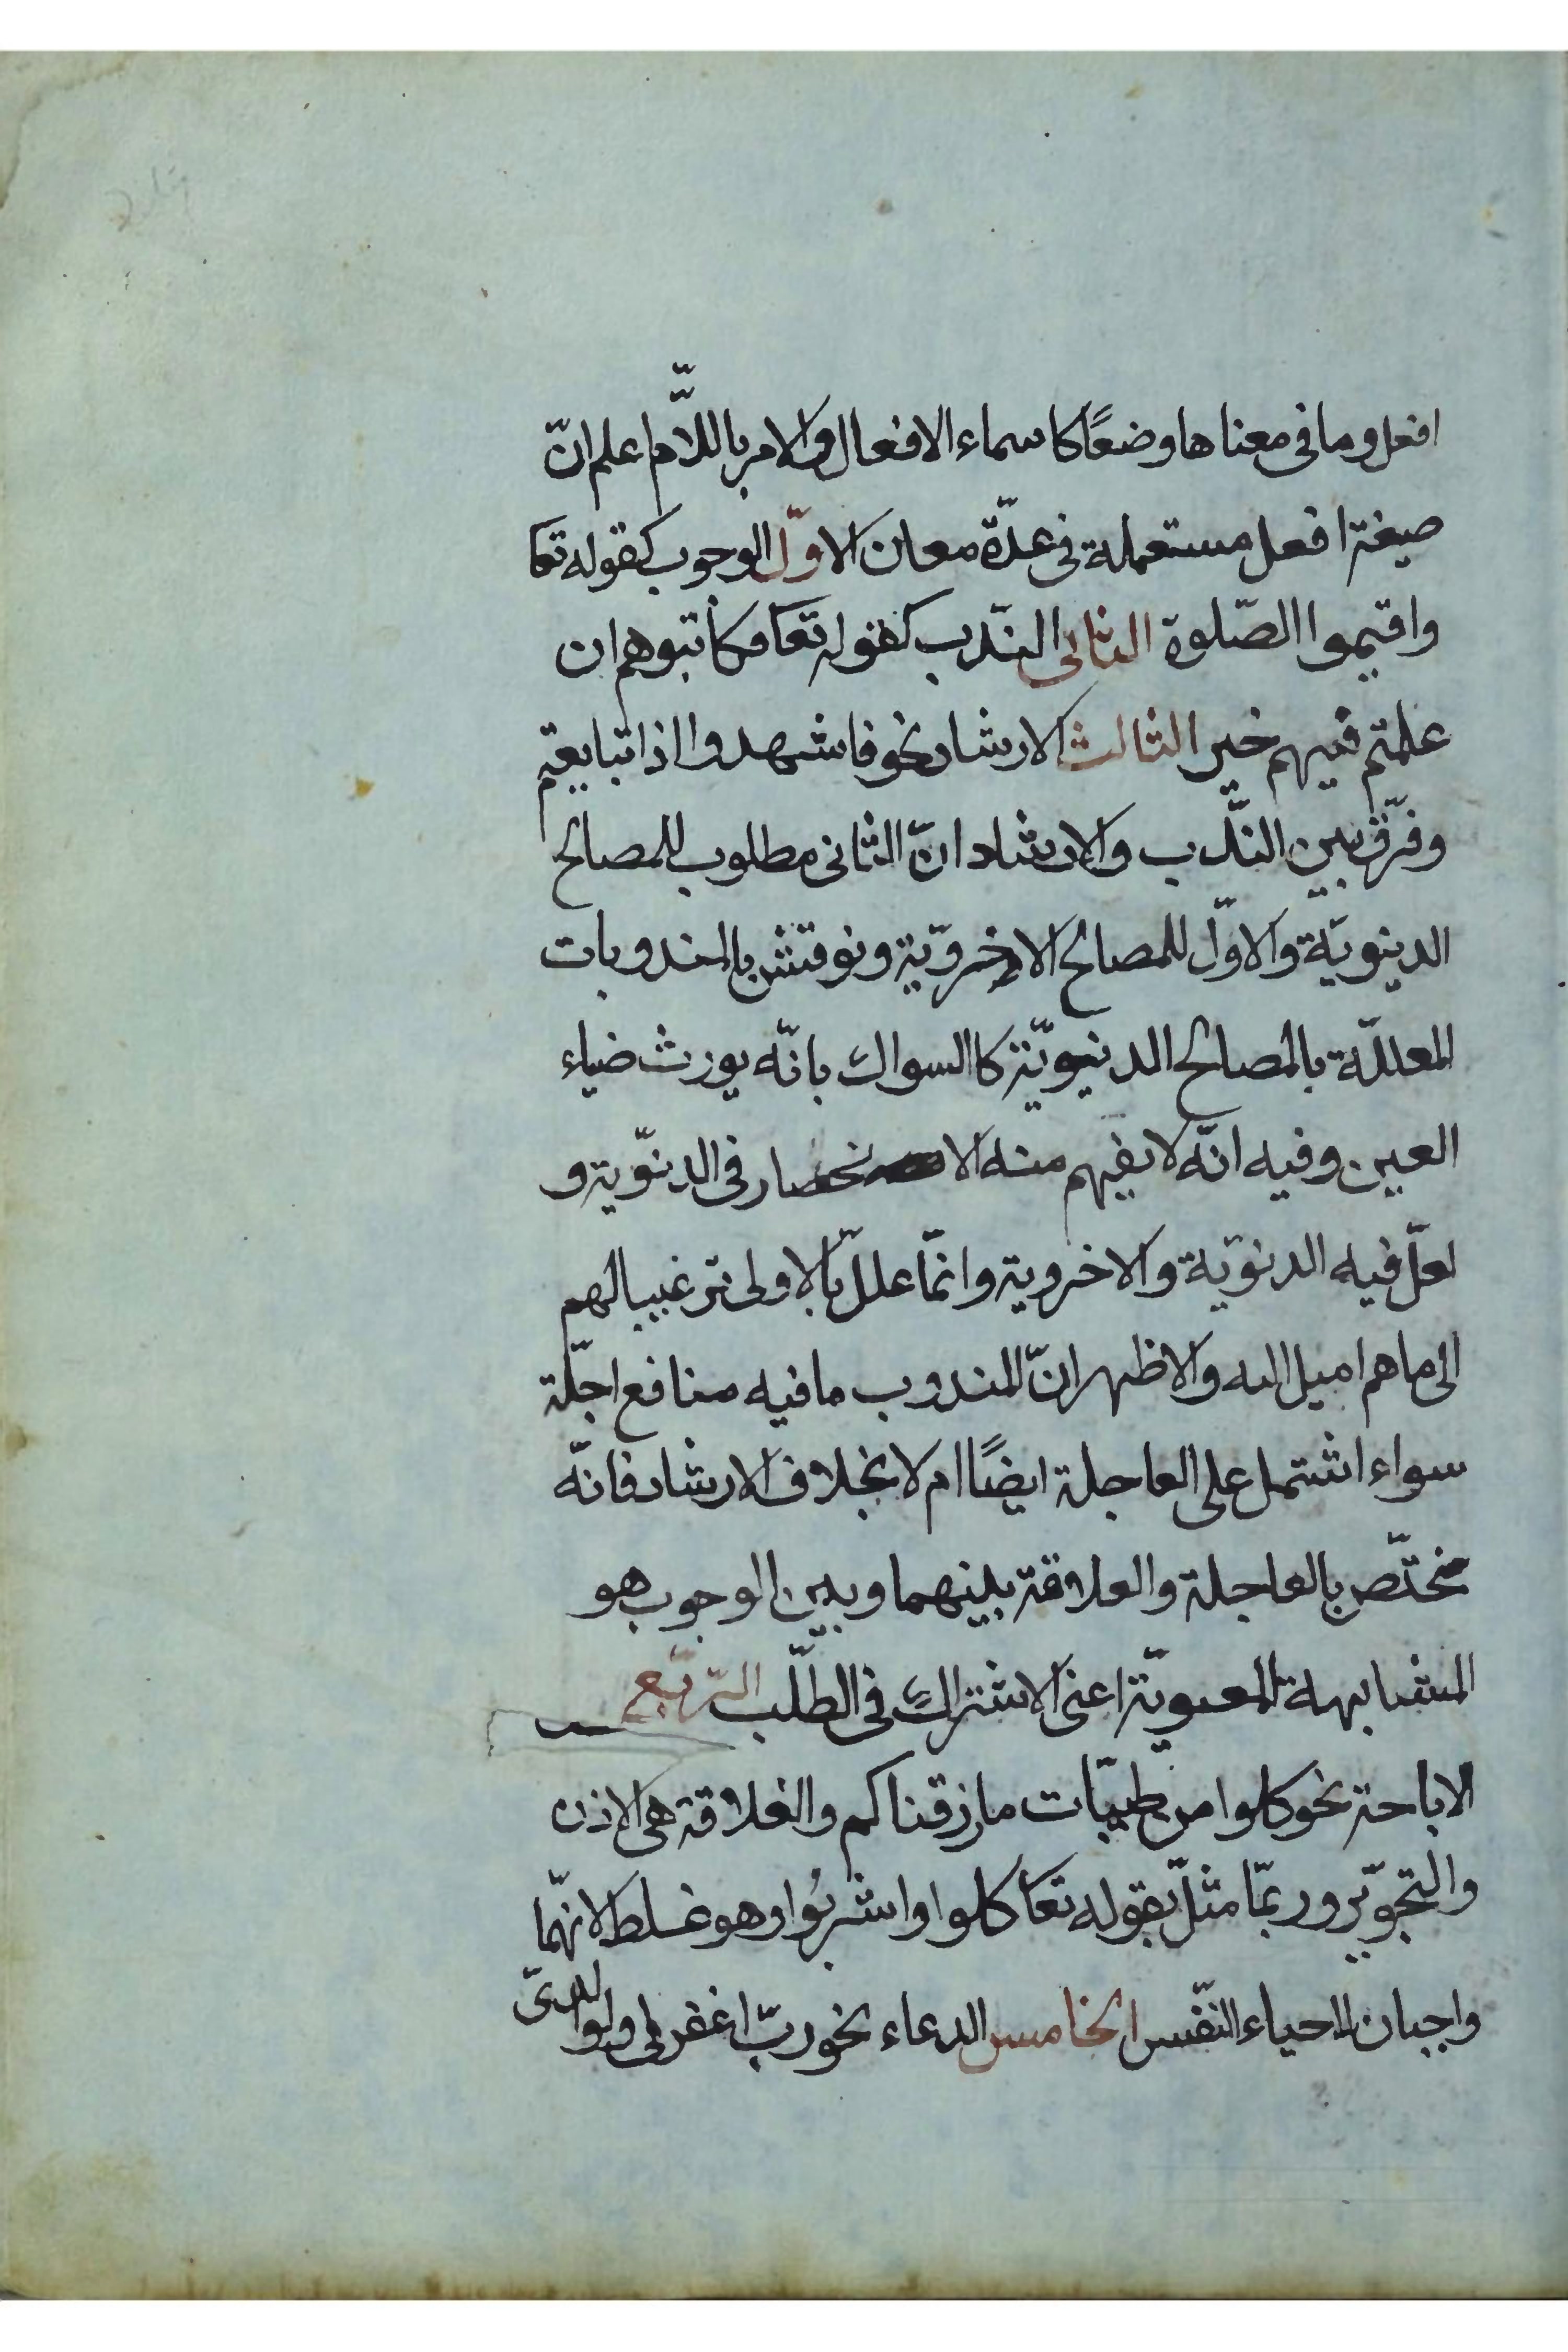 افعل وما فى معناها وضعًا كاسماء الافعال والامر باللّام اعلم انّ
صيغة افعل مستعملة فى عدّة معان الاوّل الوجوب كقوله تعا
واقيموا الصّلوة الثانى النّدب كقوله تعا فكاتبوهم ان
علمتم فيهم خير الثالث الارشاد نحو فاشهدوا اذا تبايعتم
وفرّق بين النّدب والارشاد انّ الثانى مطلوب للمصالح
الدينويّة والاوّل للمصالح الاخرويّة ونوقش بالمندوبات
المعللّة بالمصالح الدنيويّة كاالسواك بانّه يورث ضياء
العين وفيه انّه لا يفهم منه الانحصار فى الدنوّية و
لعلّ فيه الدنوّية والاخروية وانمّا علل بالاولى ترغيبا لهم
الى ما هم اميل اليه والاظهر انّ المندوب ما فيه منافع اجلّة
سواء اشتمل على العاجلة ايضًا ام لا بخلاف الارشاد فانّه
مختّص بالعاجلة والعلاقة بينهما وبين الوجوب هو
المشابهة المعنويّة اعنى الاشتراك فى الطلّب الرّبع
الاباحة نحو كلوا من طيبّات ما رزقناكم والعلاقة هى الاذن
والتجوّيز وربمّا مثلّ بقوله تعا كلوا واشربوا وهو غلط لانهمّا
واجبان لاحياء النفّس الخامس الدعاء نحو ربّ اغفر لى ولوالدىّ